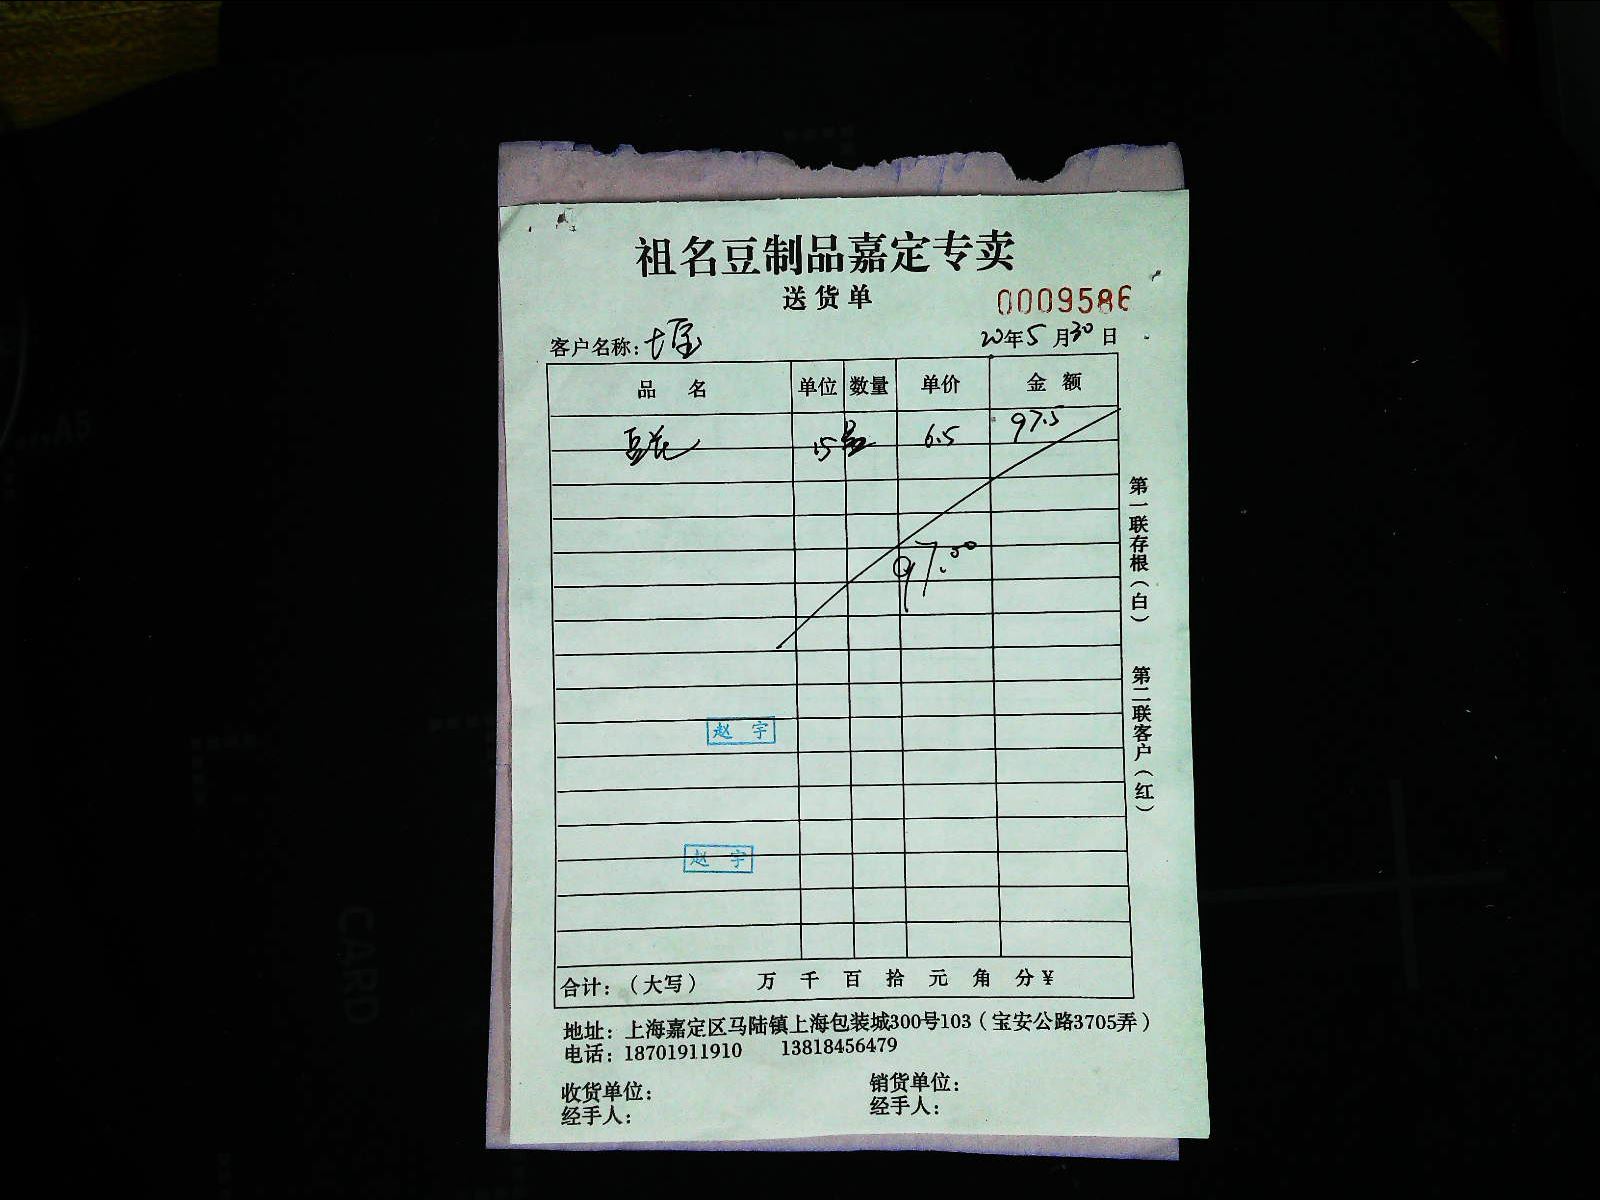 祖名豆制品嘉定专卖
送货单
0009586
客户名称:
20年5月30日
品 名 单位 数量 单价 金 额
豆花 15 6.5 97.5
97.50
第一联存根(白) 第二联客户(红)
赵 宇
赵 宇
合计:(大写) 万 千 百 拾 元 角 分¥
地址: 上海嘉定区马陆镇上海包装城300号103(宝安公路3705弄)
电话: 18701911910 13818456479
收货单位: 销货单位:
经手人: 经手人:
A5
CARD